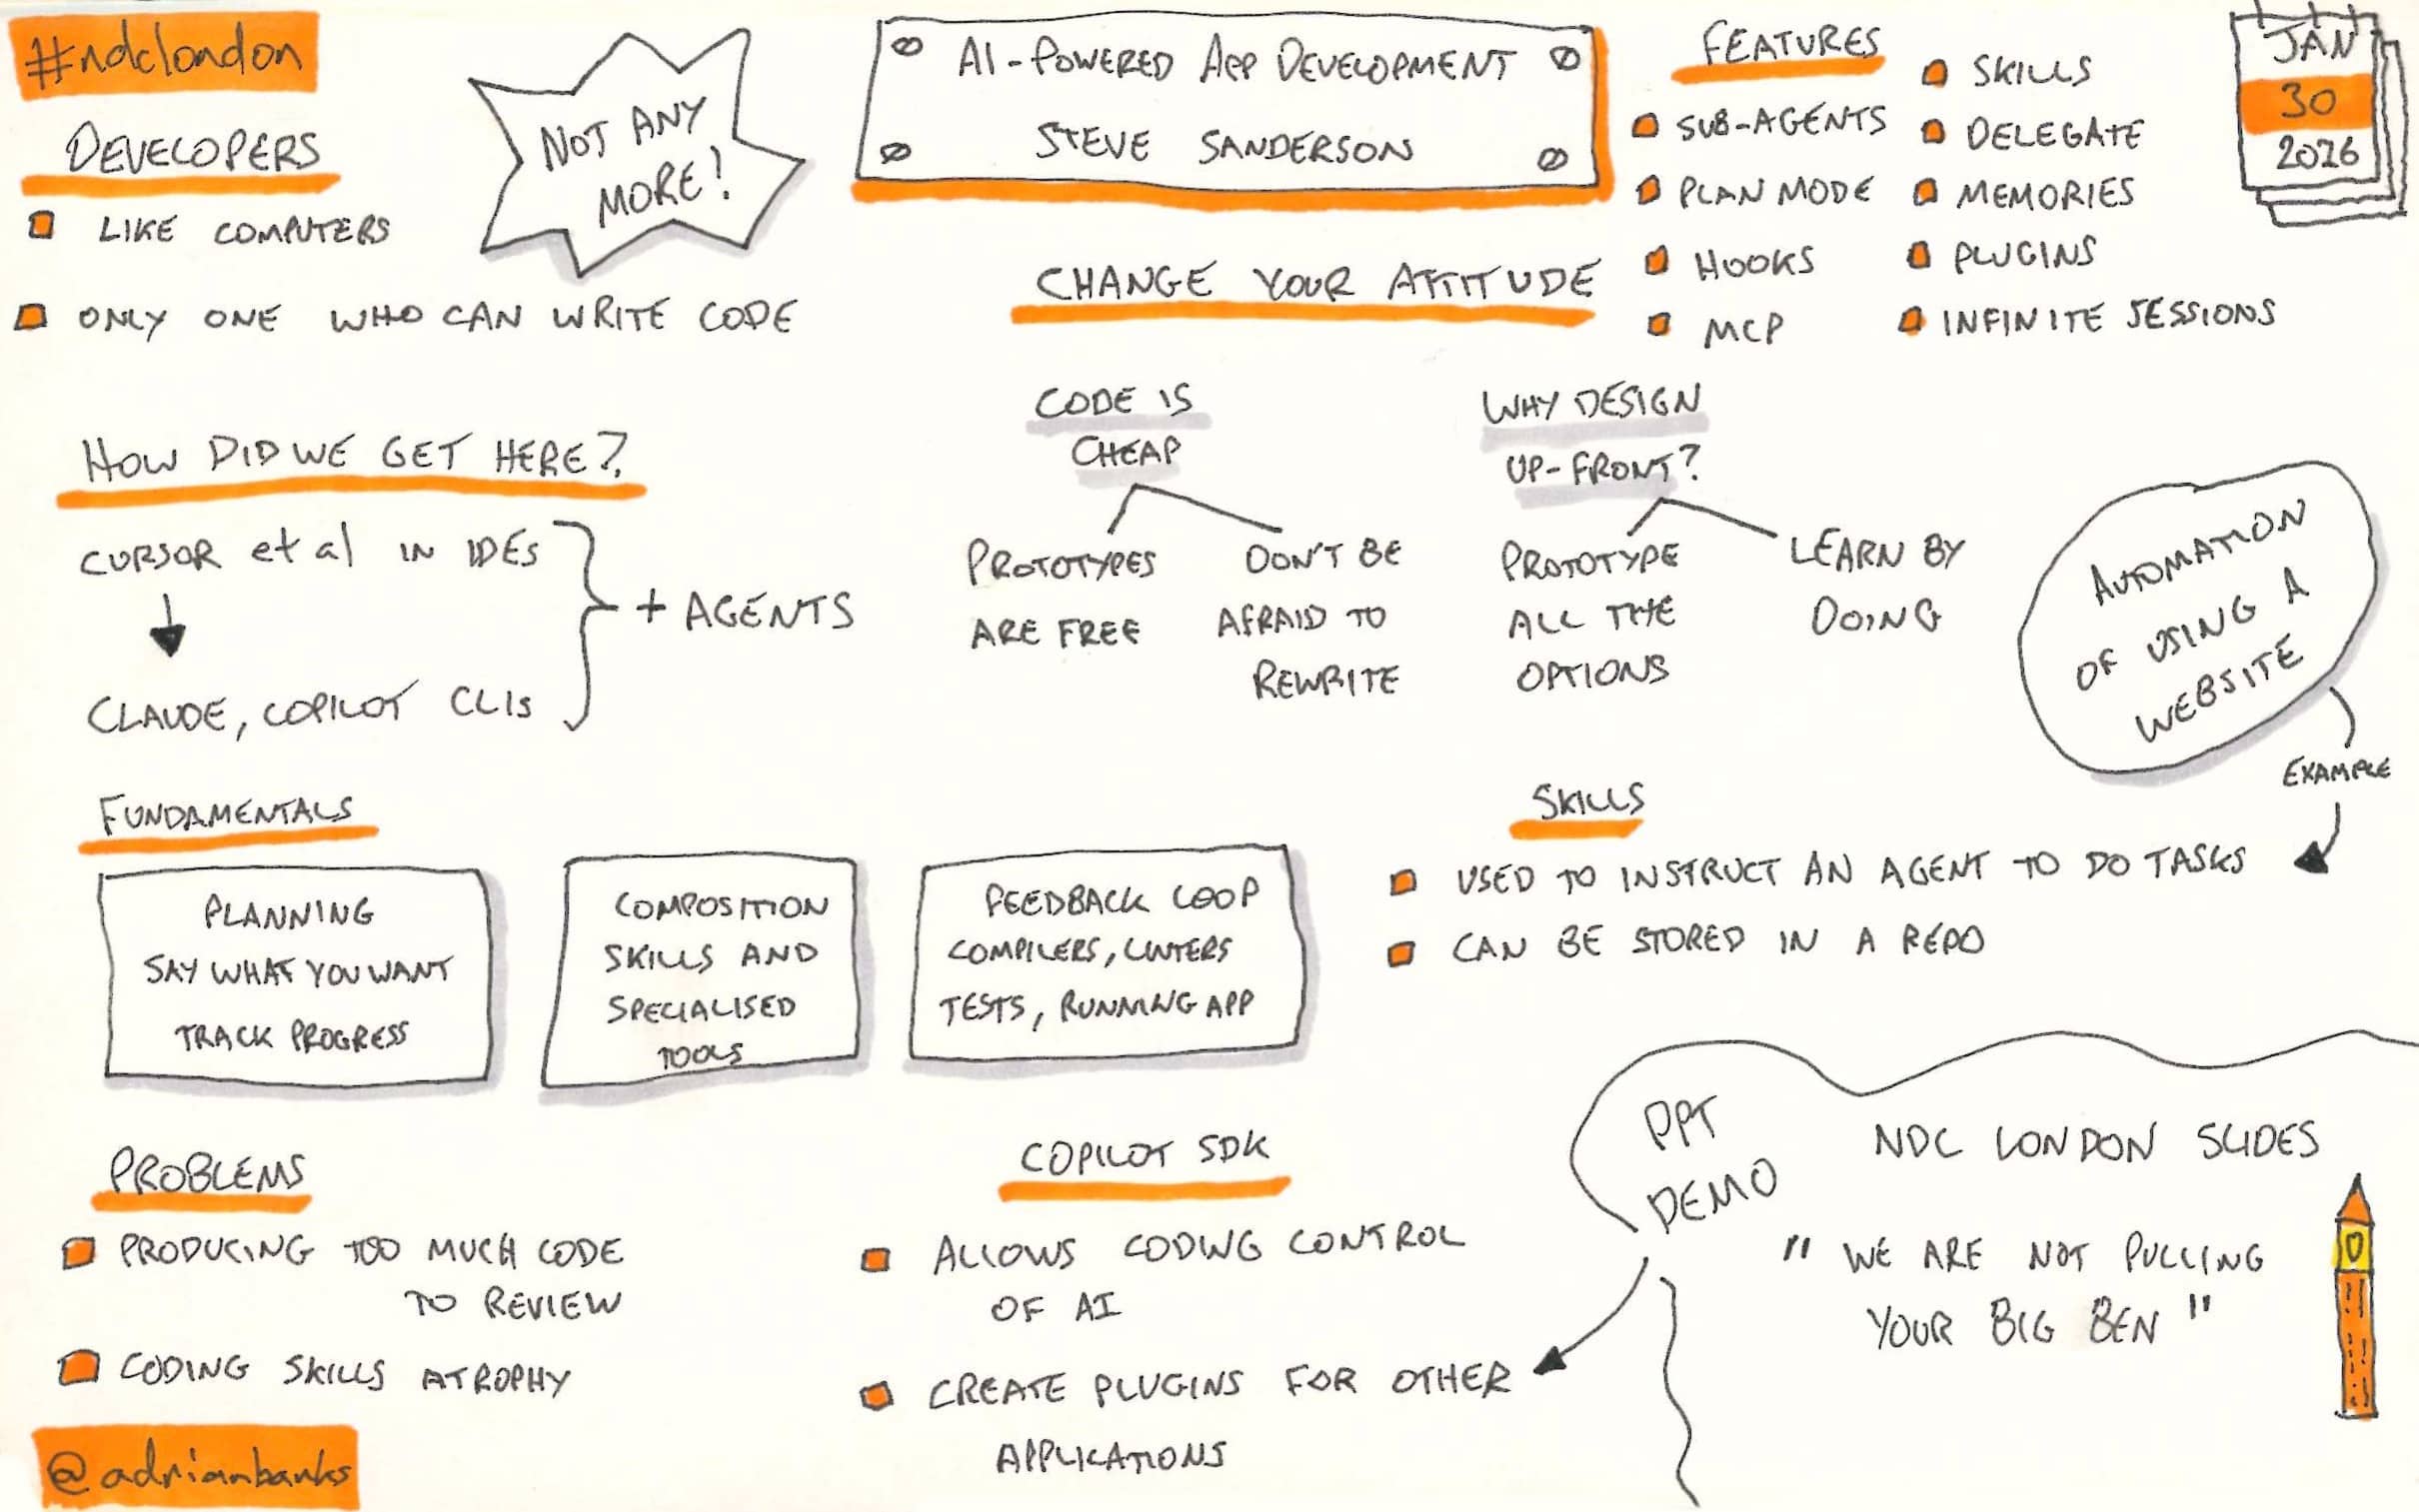 #ndclondon
DEVELOPERS
LIKE COMPUTERS
ONLY ONE WHO CAN WRITE CODE
NOT ANY
MORE!
AI-POWERED APP DEVELOPMENT
STEVE SANDERSON
FEATURES
SUB-AGENTS
PLAN MODE
HOOKS
MCP
SKILLS
DELEGATE
MEMORIES
PLUGINS
INFINITE SESSIONS
JAN
30
2026
HOW DID WE GET HERE?
CURSOR et al IN IDEs
CLAUDE, COPILOT CLIs
+ AGENTS
CHANGE YOUR ATTITUDE
CODE IS
CHEAP
PROTOTYPES
ARE FREE
DON'T BE
AFRAID TO
REWRITE
WHY DESIGN
UP-FRONT?
PROTOTYPE
ALL THE
OPTIONS
LEARN BY
DOING
AUTOMATION
OF USING A
WEBSITE
EXAMPLE
FUNDAMENTALS
PLANNING
SAY WHAT YOU WANT
TRACK PROGRESS
COMPOSITION
SKILLS AND
SPECIALISED
TOOLS
FEEDBACK LOOP
COMPILERS, LINTERS
TESTS, RUNNING APP
SKILLS
USED TO INSTRUCT AN AGENT TO DO TASKS
CAN BE STORED IN A REPO
PROBLEMS
PRODUCING TOO MUCH CODE
TO REVIEW
CODING SKILLS ATROPHY
COPILOT SDK
ALLOWS CODING CONTROL
OF AI
CREATE PLUGINS FOR OTHER
APPLICATIONS
PPT
DEMO
NDC LONDON SLIDES
"WE ARE NOT PULLING
YOUR BIG BEN"
@adrianbanks